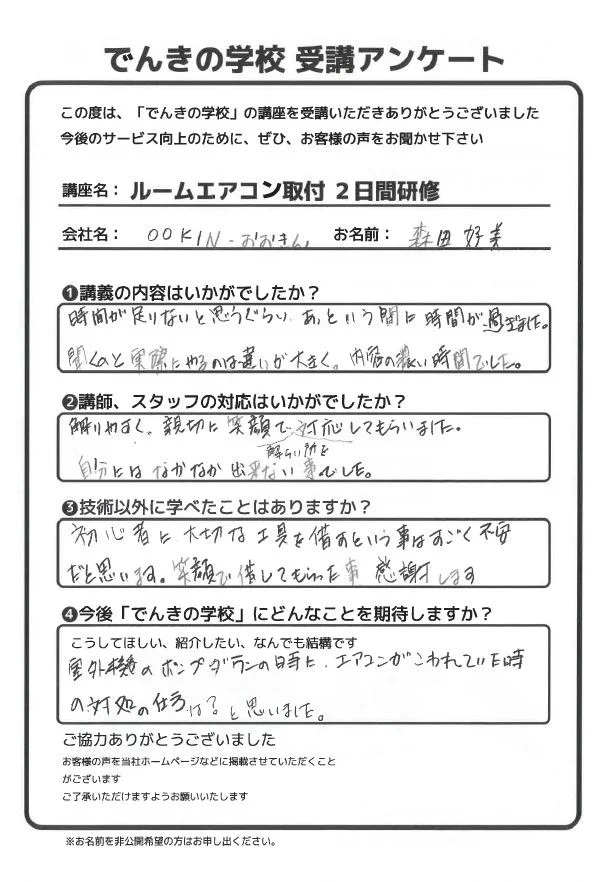 でんきの学校 受講アンケート
この度は、「でんきの学校」の講座を受講いただきありがとうございました
今後のサービス向上のために、ぜひ、お客様の声をお聞かせ下さい
講座名： ルームエアコン取付 2日間研修
会社名： OOKIN-おおきん お名前： 森田 好美
❶講義の内容はいかがでしたか？
時間が足りないと思うぐらい、あっという間に時間が過ぎました。
聞くのと実際にやるのは違いが大きく。内容の濃い時間でした。
❷講師、スタッフの対応はいかがでしたか？
解りやすく、親切に笑顔で対応してもらいました。
解らい所を
自分にはなかなか出来ない事でした。
❸技術以外に学べたことはありますか？
初心者に大切な工具を借すという事はすごく不安
だと思います。笑顔で借してもらった事 感謝します
❹今後「でんきの学校」にどんなことを期待しますか？
こうしてほしい、紹介したい、なんでも結構です
室外機のポンプダウンの時に、エアコンがこわれていた時
の対処の仕方は？と思いました。
ご協力ありがとうございました
お客様の声を当社ホームページなどに掲載させていただくこと
がございます
ご了承いただけますようお願いいたします
※お名前を非公開希望の方はお申し出ください。